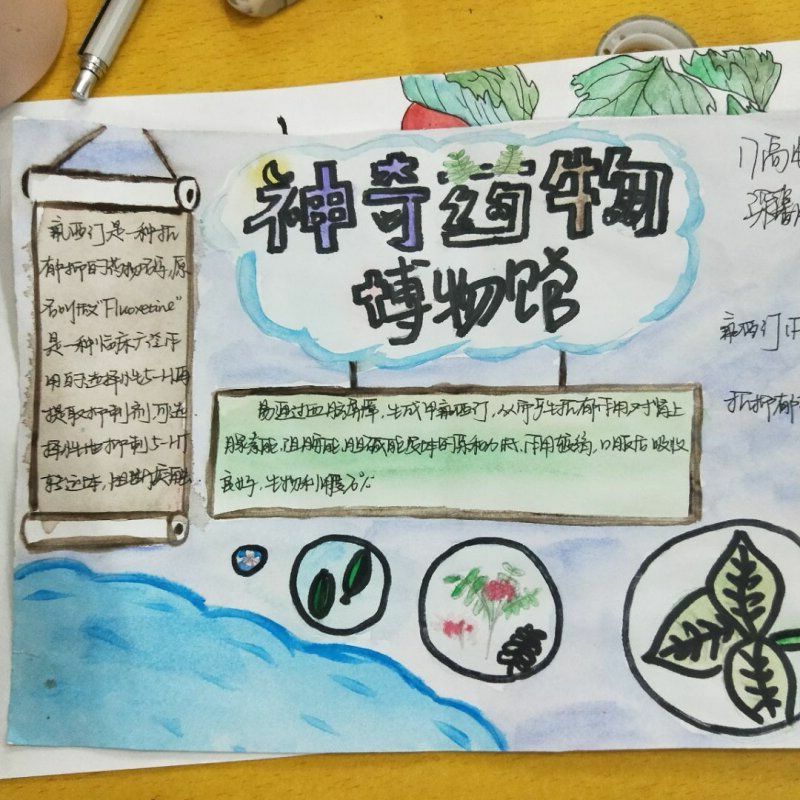 神奇药物
博物馆
氟西汀是一种抗
郁抑的药物
名叫做"Fluoxetine"
是一种临床广泛
用的选择性5-HT再
摄取抑制剂,可选
择性地抑制5-HT
转运体,阻断
易通过血脑屏障,生成去甲氟西汀,从而产生抗郁作用对肾上
腺素能,组胺能,胆碱能受体的亲和力低,作用较弱,口服后吸收
良好,生物利用度
氟西汀
抗抑郁